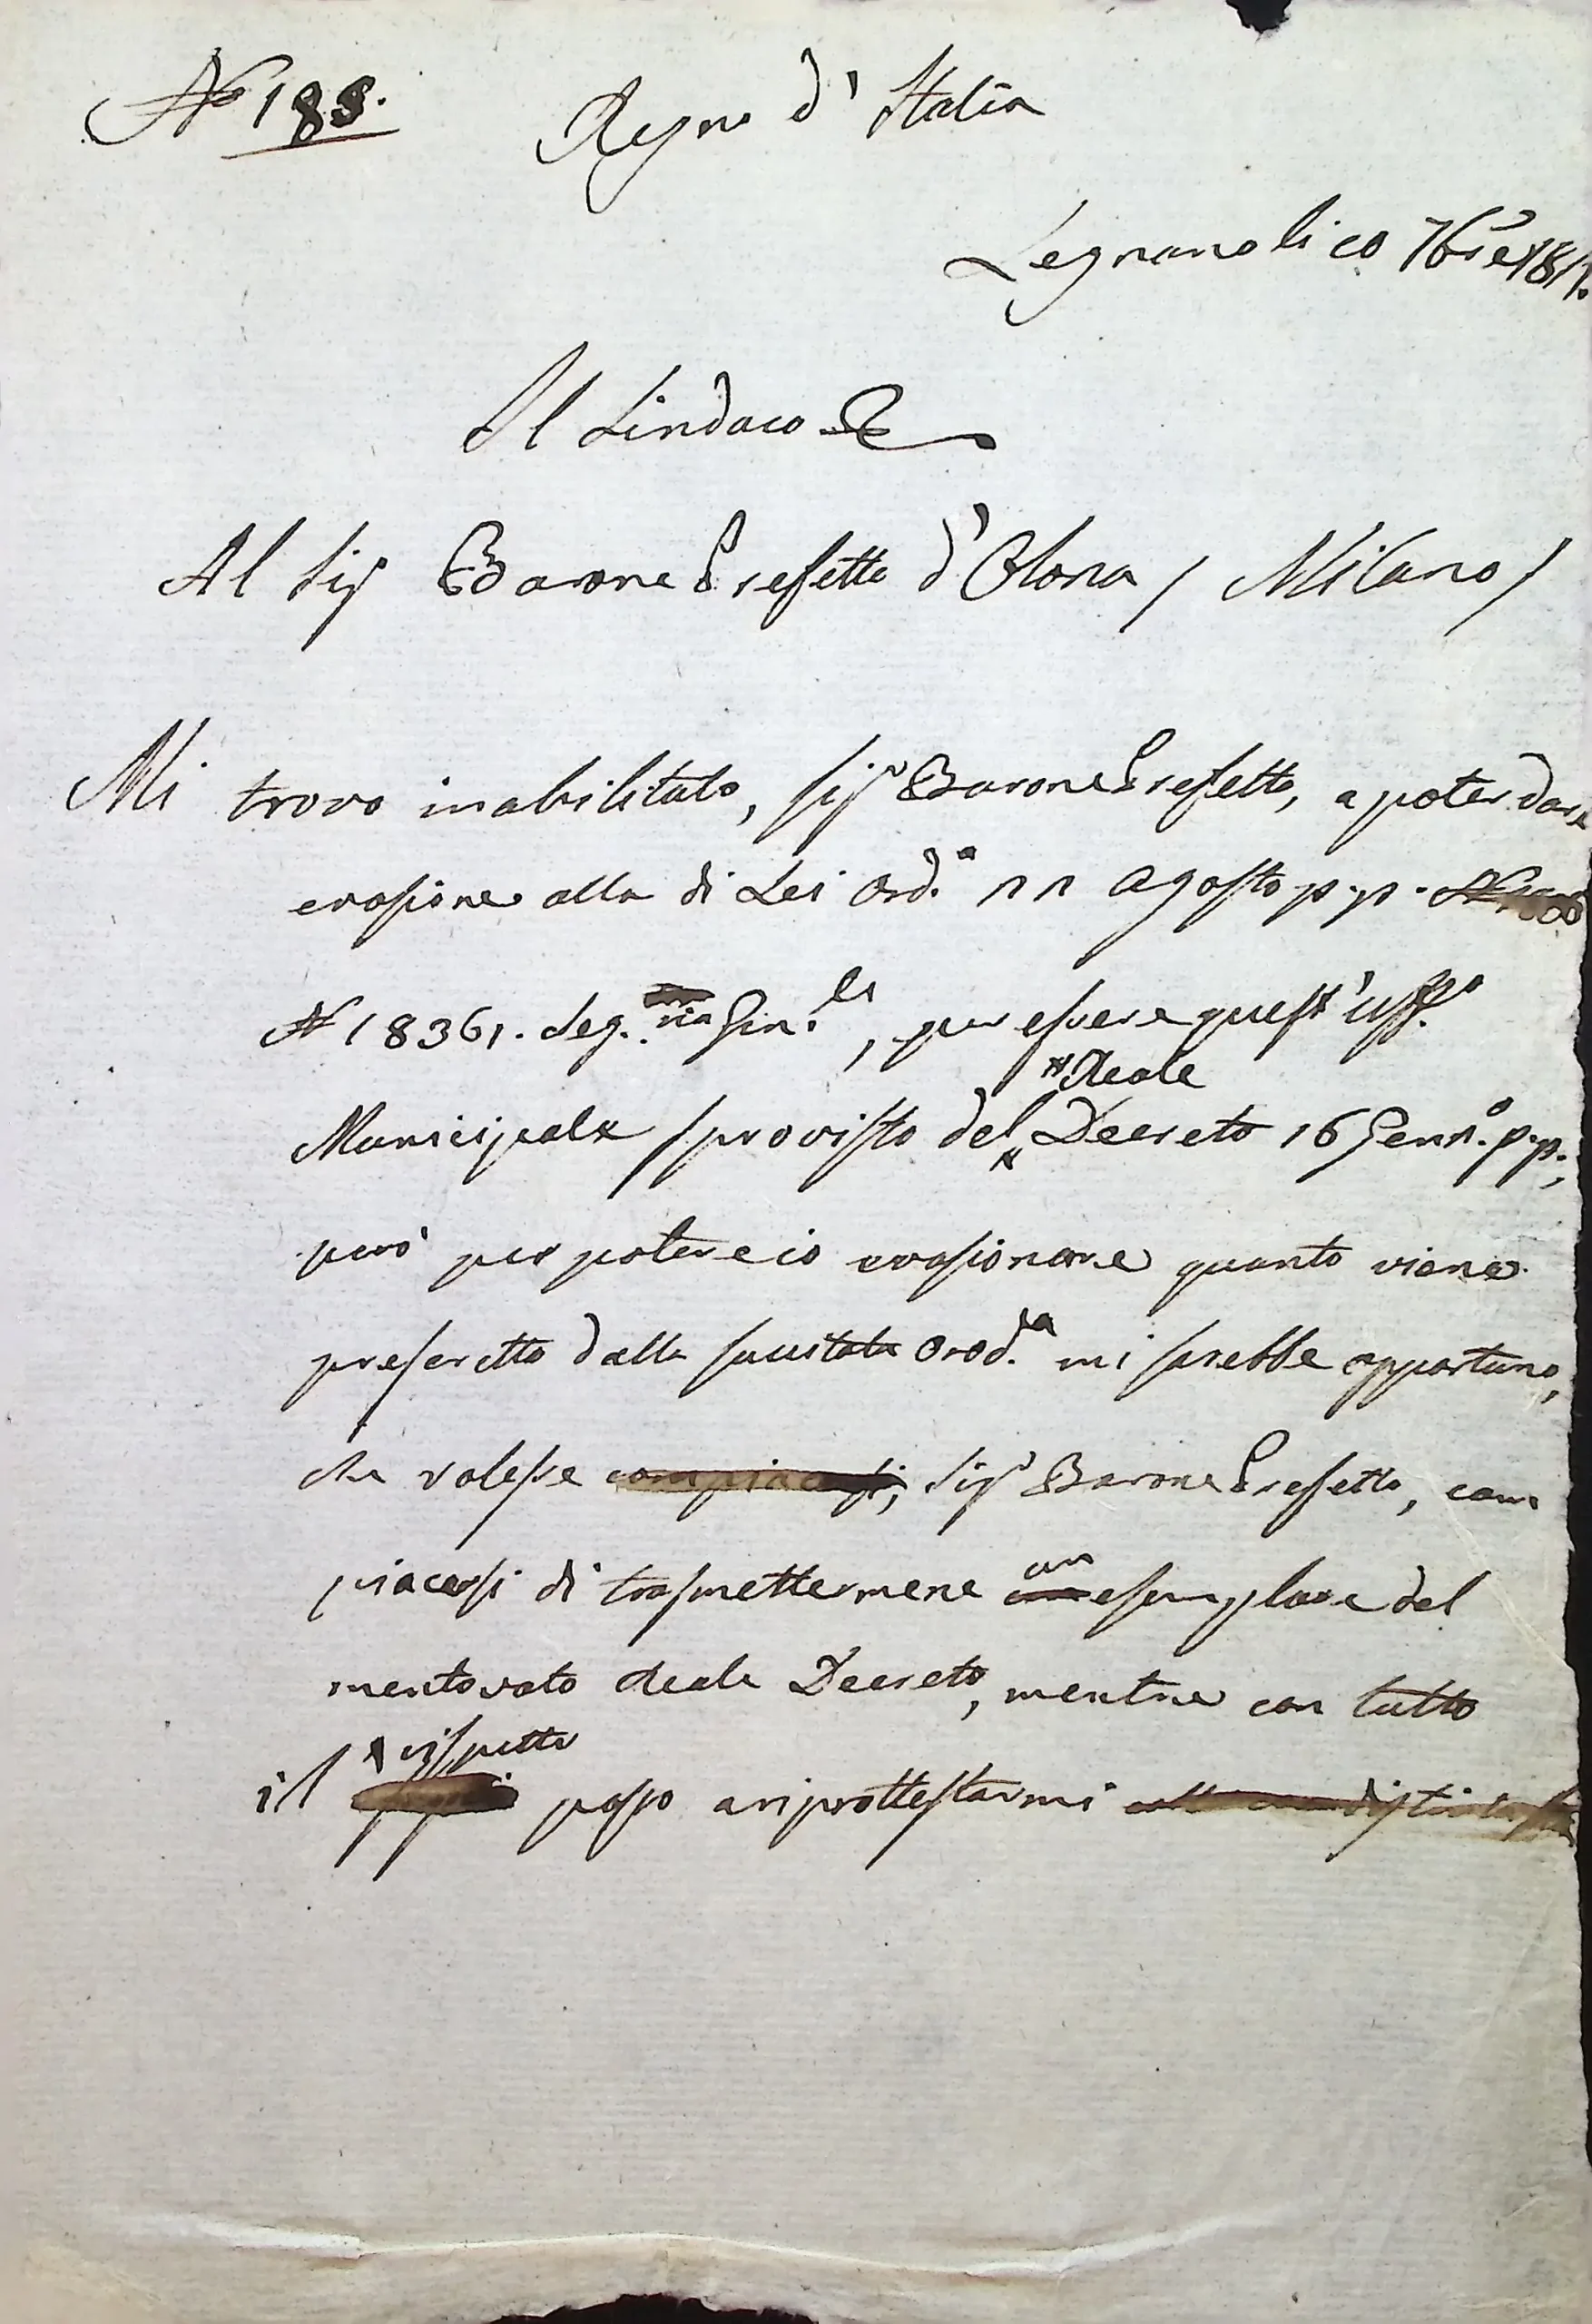 N 188.
Regno d'Italia
Legnano li 20 7bre 1811.
Il Sindaco
Al Sigr Barone Prefetto d'Olona / Milano /
Mi trovo inabilitato, Sigr Barone Prefetto, a poter dare
evasione alla di Lei Ord.a 22 Agosto p.p.
N 18361. Seg.ria Gen.le, per essere quest'Uff.o
Municipale sprovisto del Reale Decreto 16 Genn.o p.p.;
però per potere ciò evasionare quanto viene
prescritto dalla sucitata Ord.a mi sarebbe opportuno,
che volesse compiacersi, Sigr Barone Prefetto, com
piacersi di trasmettermene un esemplare del
mentovato Reale Decreto, mentre con tutto
il rispetto passo a riprottestarmi